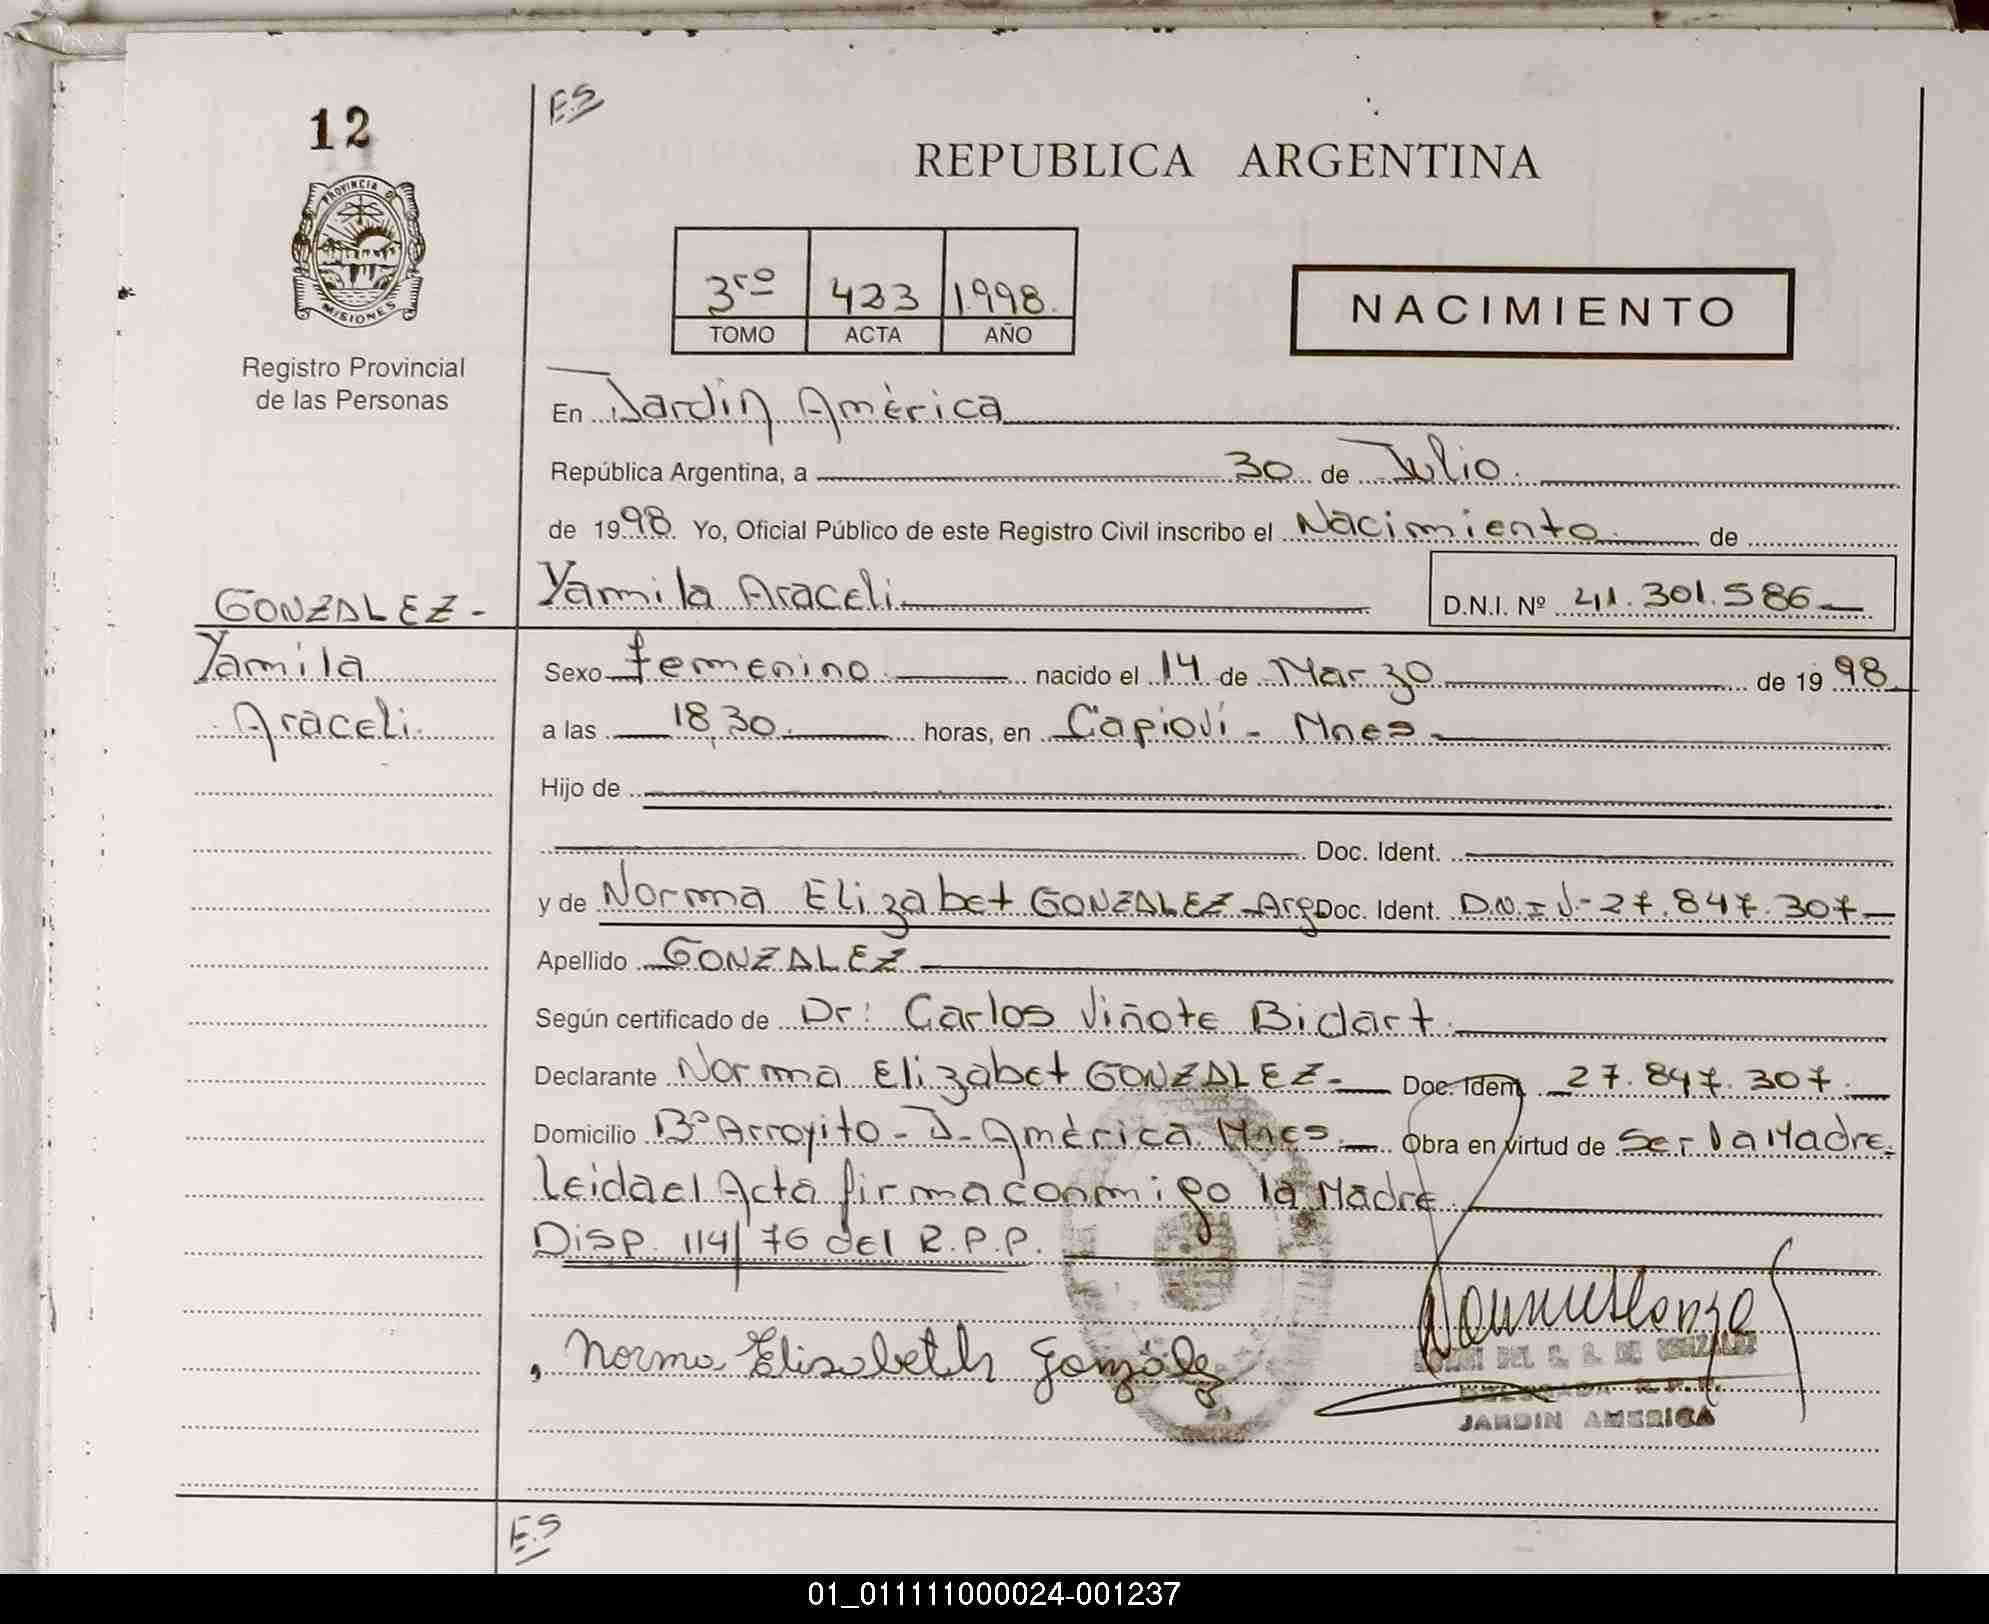 12
PROVINCIA DE
MISIONES
Registro Provincial
de las Personas
E.S
REPUBLICA ARGENTINA
3ro 423 1.998.
TOMO ACTA AÑO
NACIMIENTO
En Jardín América
República Argentina, a 30 de Julio.
de 1998. Yo, Oficial Público de este Registro Civil inscribo el Nacimiento de
Yamila Araceli D.N.I. Nº 41.301.586
GONZALEZ-
Yamila
Araceli.
Sexo femenino nacido el 14 de Marzo de 1998
a las 18,30 horas, en Capioví - Mnes
Hijo de
Doc. Ident.
y de Norma Elizabet GONZALEZ-Arg Doc. Ident. D.N.I J-27.847.307
Apellido GONZALEZ
Según certificado de Dr: Carlos Viñote Bidart.
Declarante Norma Elizabet GONZALEZ- Doc. Ident. 27.847.307.
Domicilio Bº Arroyito - J- América Mnes. Obra en virtud de Ser la Madre.
Leida el Acta firma conmigo la Madre.
Disp. 114/76 del R.P.P.
Norma Elisabeth González
DE GONZALEZ
DELEGADA R.P.P.
JARDIN AMERICA
E.S
01_011111000024-001237